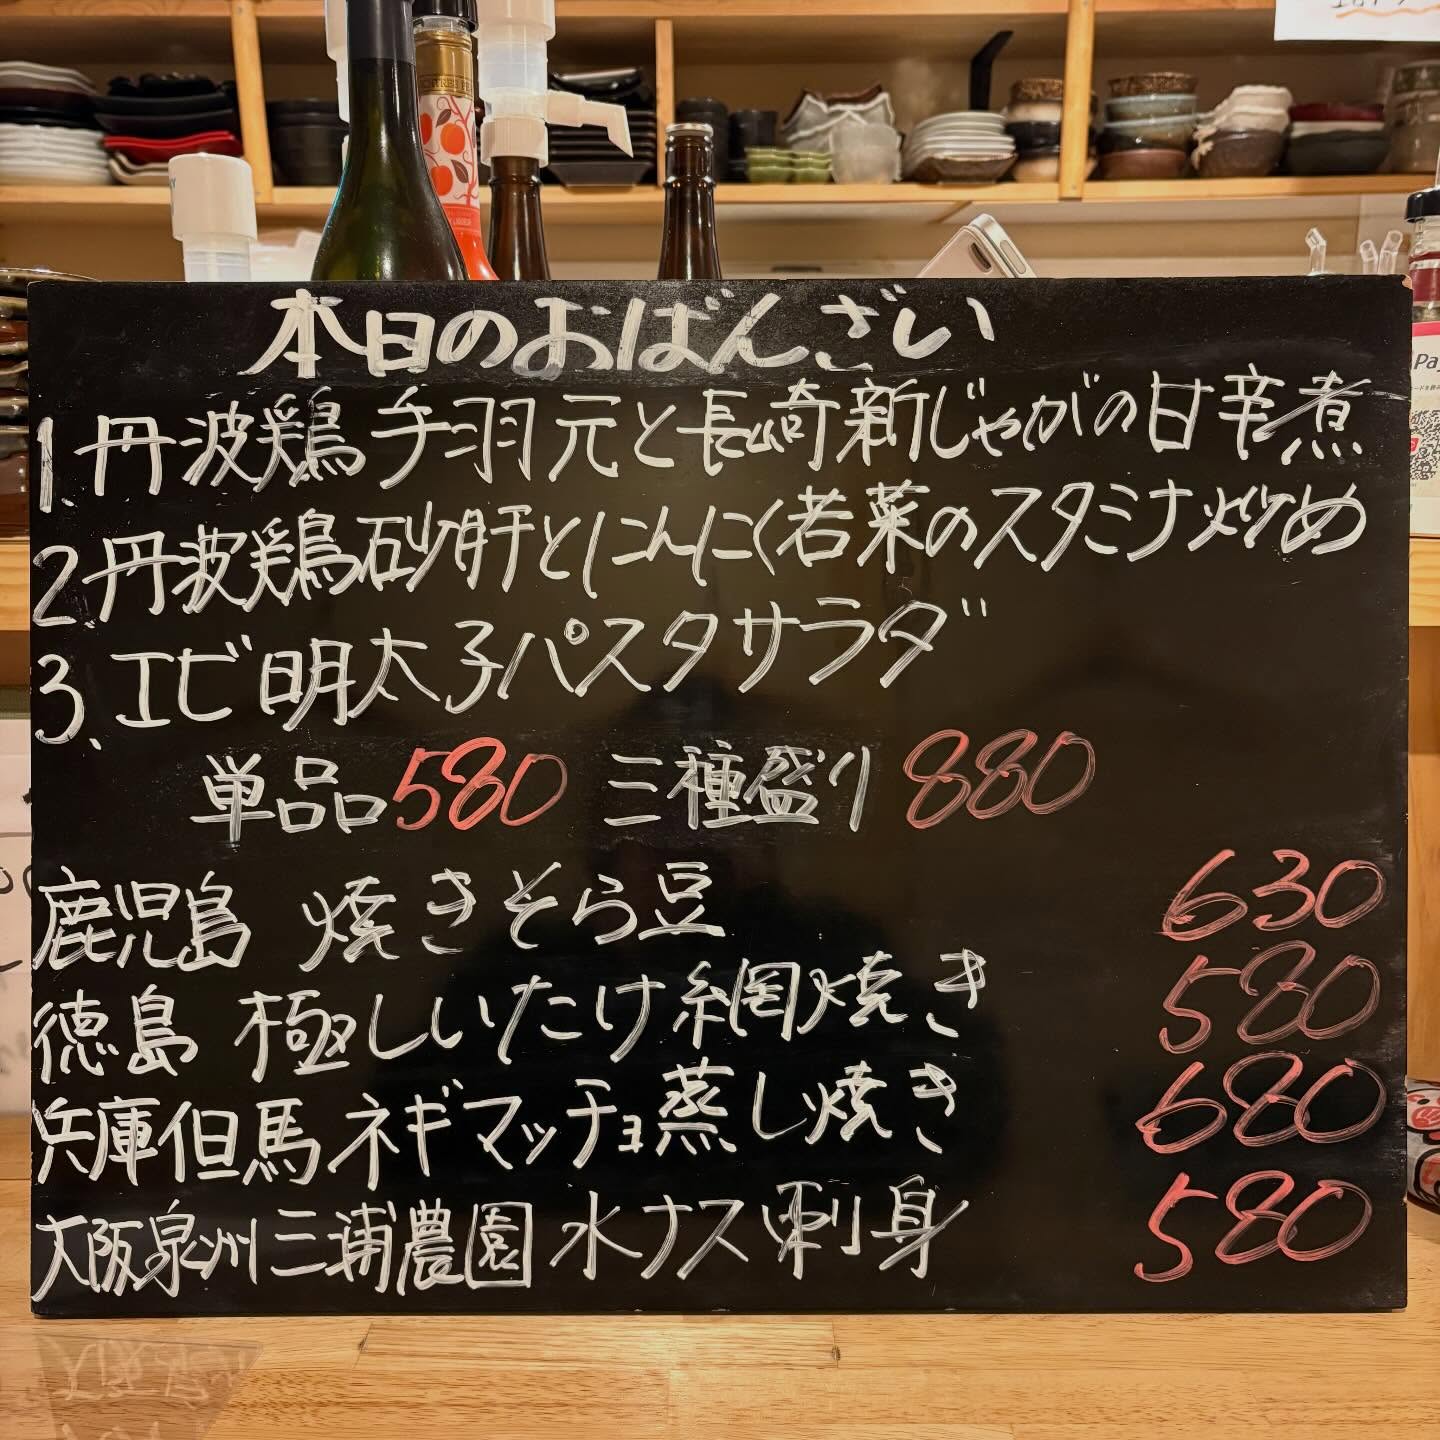 本日のおばんざい
1.丹波鶏手羽元と長崎新じゃがの甘辛煮
2.丹波鶏砂肝とにんにく若葉のスタミナ炒め
3.エビ明太子パスタサラダ
単品580 三種盛り880
鹿児島 焼きそら豆 630
徳島 極しいたけ網焼き 580
兵庫但馬ネギマッチョ蒸し焼き 680
大阪泉州三浦農園 水ナス刺身 580
Pa